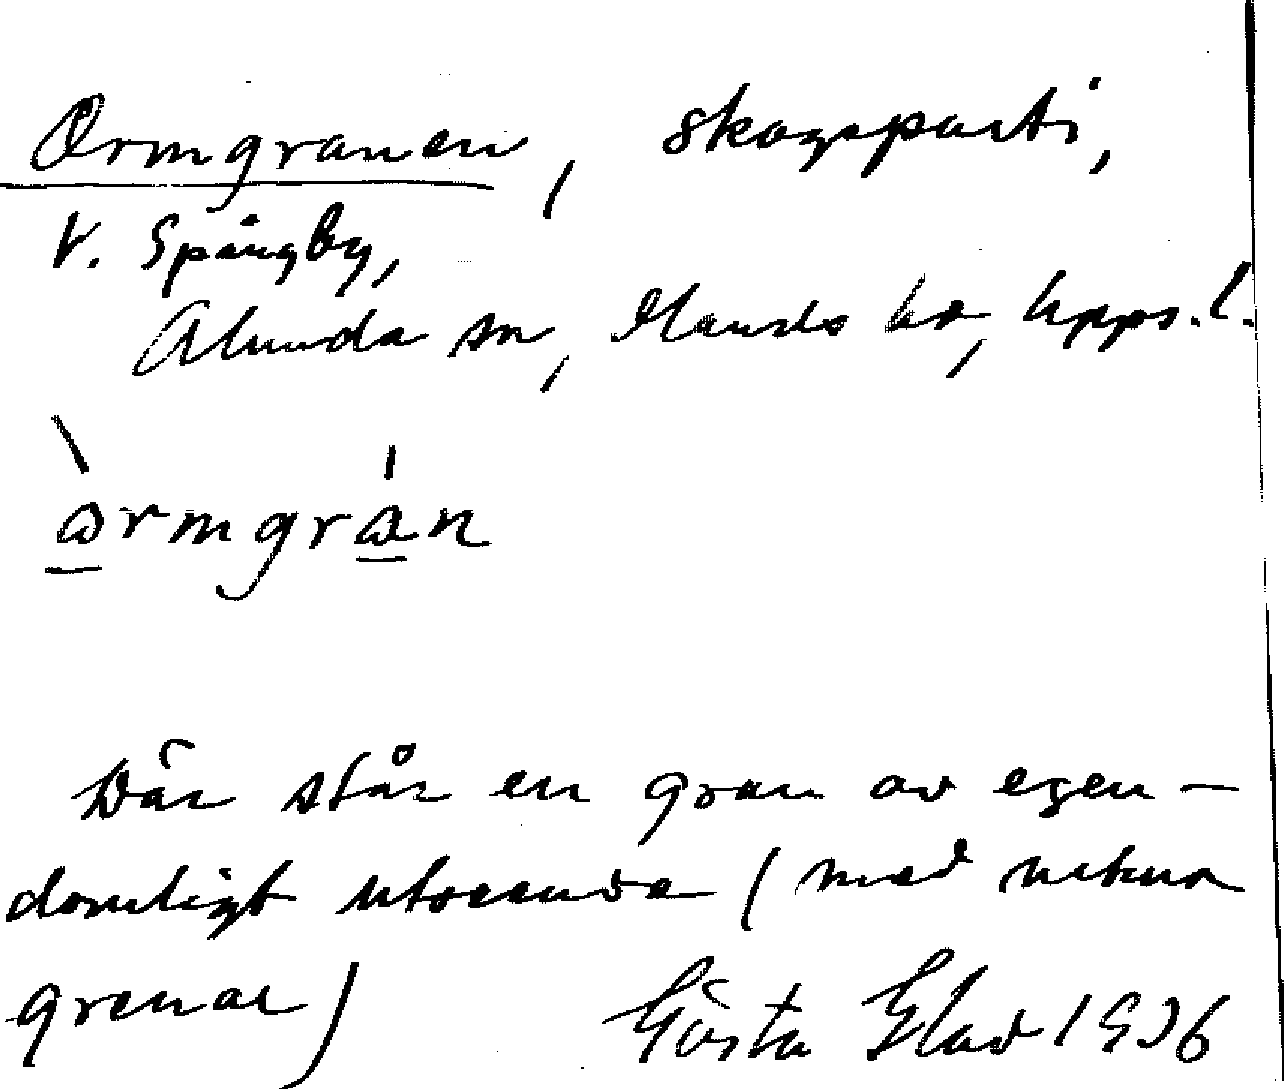 Ormgranen, skogsparti,
V. Spångby,
Alunda sn, Olands hd, Upps. l.
òrmgrán
Där står en gran av egen-
domligt utseende (med
grenar)
Gösta Elad 1936